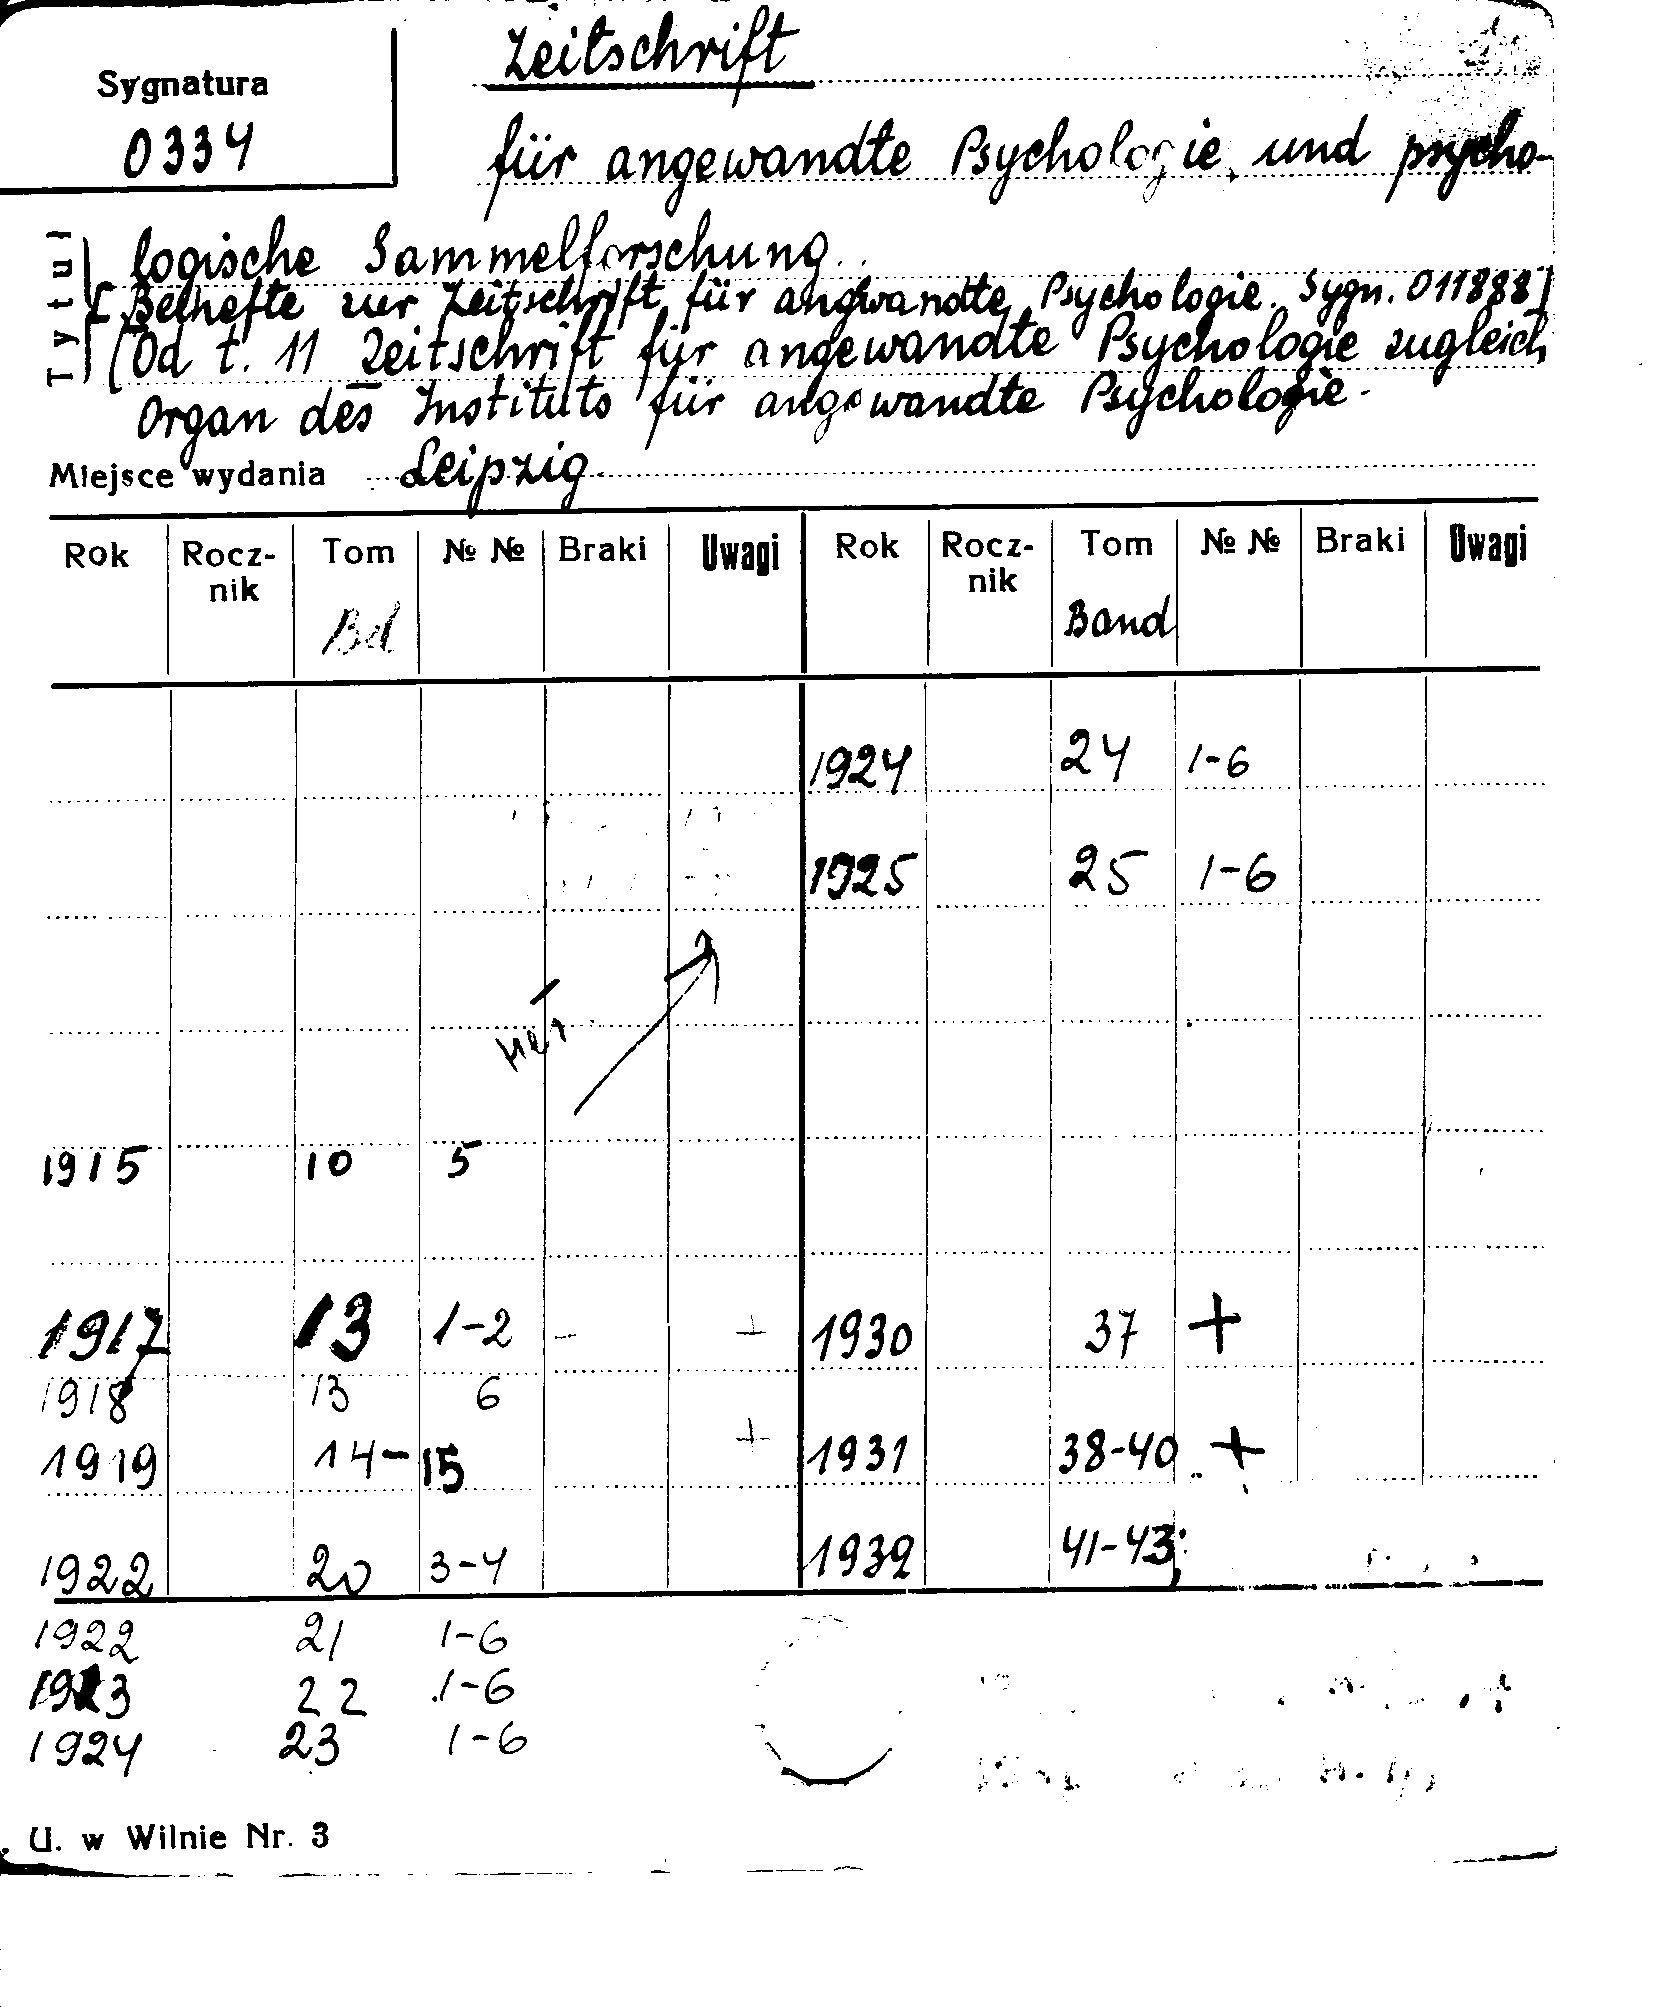 Zeitschrift
Sygnatura
0334
für angewandte Psychologie, und psycho-
Tytuł
logische Sammelforschung.
[Beihefte zur Zeitschrift für angwandte Psychologie. Sygn. 011888]
(Od t. 11 Zeitschrift für angewandte Psychologie zugleich
Organ des Instituts für angewandte Psychologie.
Miejsce wydania Leipzig
Rok Rocz- Tom № № Braki Uwagi Rok Rocz- Tom № № Braki Uwagi
nik nik
Bd Band
1924 24 1-6
1925 25 1-6
нет
1915 10 5
1917 13 1-2 - + 1930 37 +
1918 13 6
1919 14-15 + 1931 38-40 +
1922 20 3-4 1932 41-43;
1922 21 1-6
1923 22 1-6
1924 23 1-6
U. w Wilnie Nr. 3